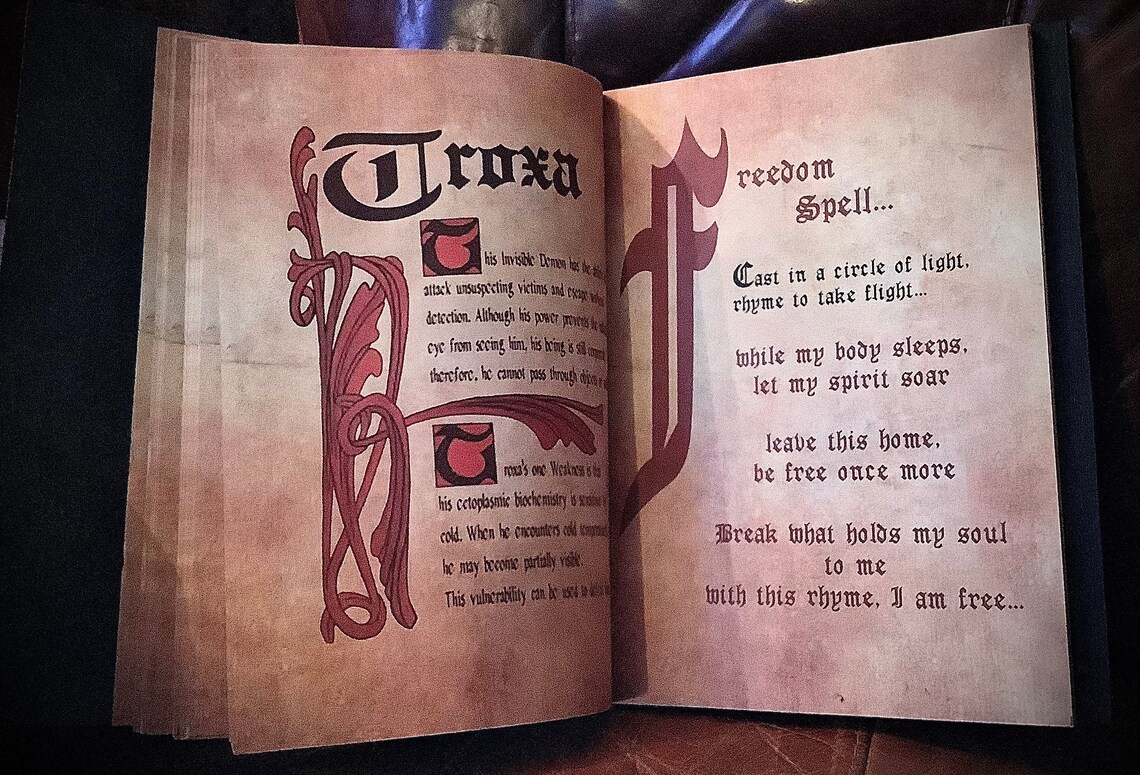 Troxa
This Invisible Demon has the
attack unsuspecting victims and escape
detection. Although his power prevents the
eye from seeing him, his being is still
therefore, he cannot pass through objects
Troxa's one Weakness is that
his ectoplasmic biochemistry is sensitive
cold. When he encounters cold
he may become partially visible.
This vulnerability can be used to
Freedom
Spell...
Cast in a circle of light,
rhyme to take flight...
while my body sleeps,
let my spirit soar
leave this home,
be free once more
Break what holds my soul
to me
with this rhyme, I am free...